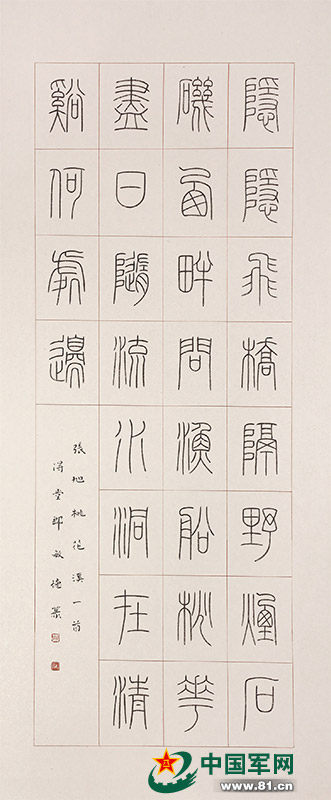 隱隱飛橋隔野煙石
磯西畔問漁船桃華
盡日隨流水洞在清
谿何處邊
張旭桃花溪一首
堂 敏德篆
中国军网
www.81.cn